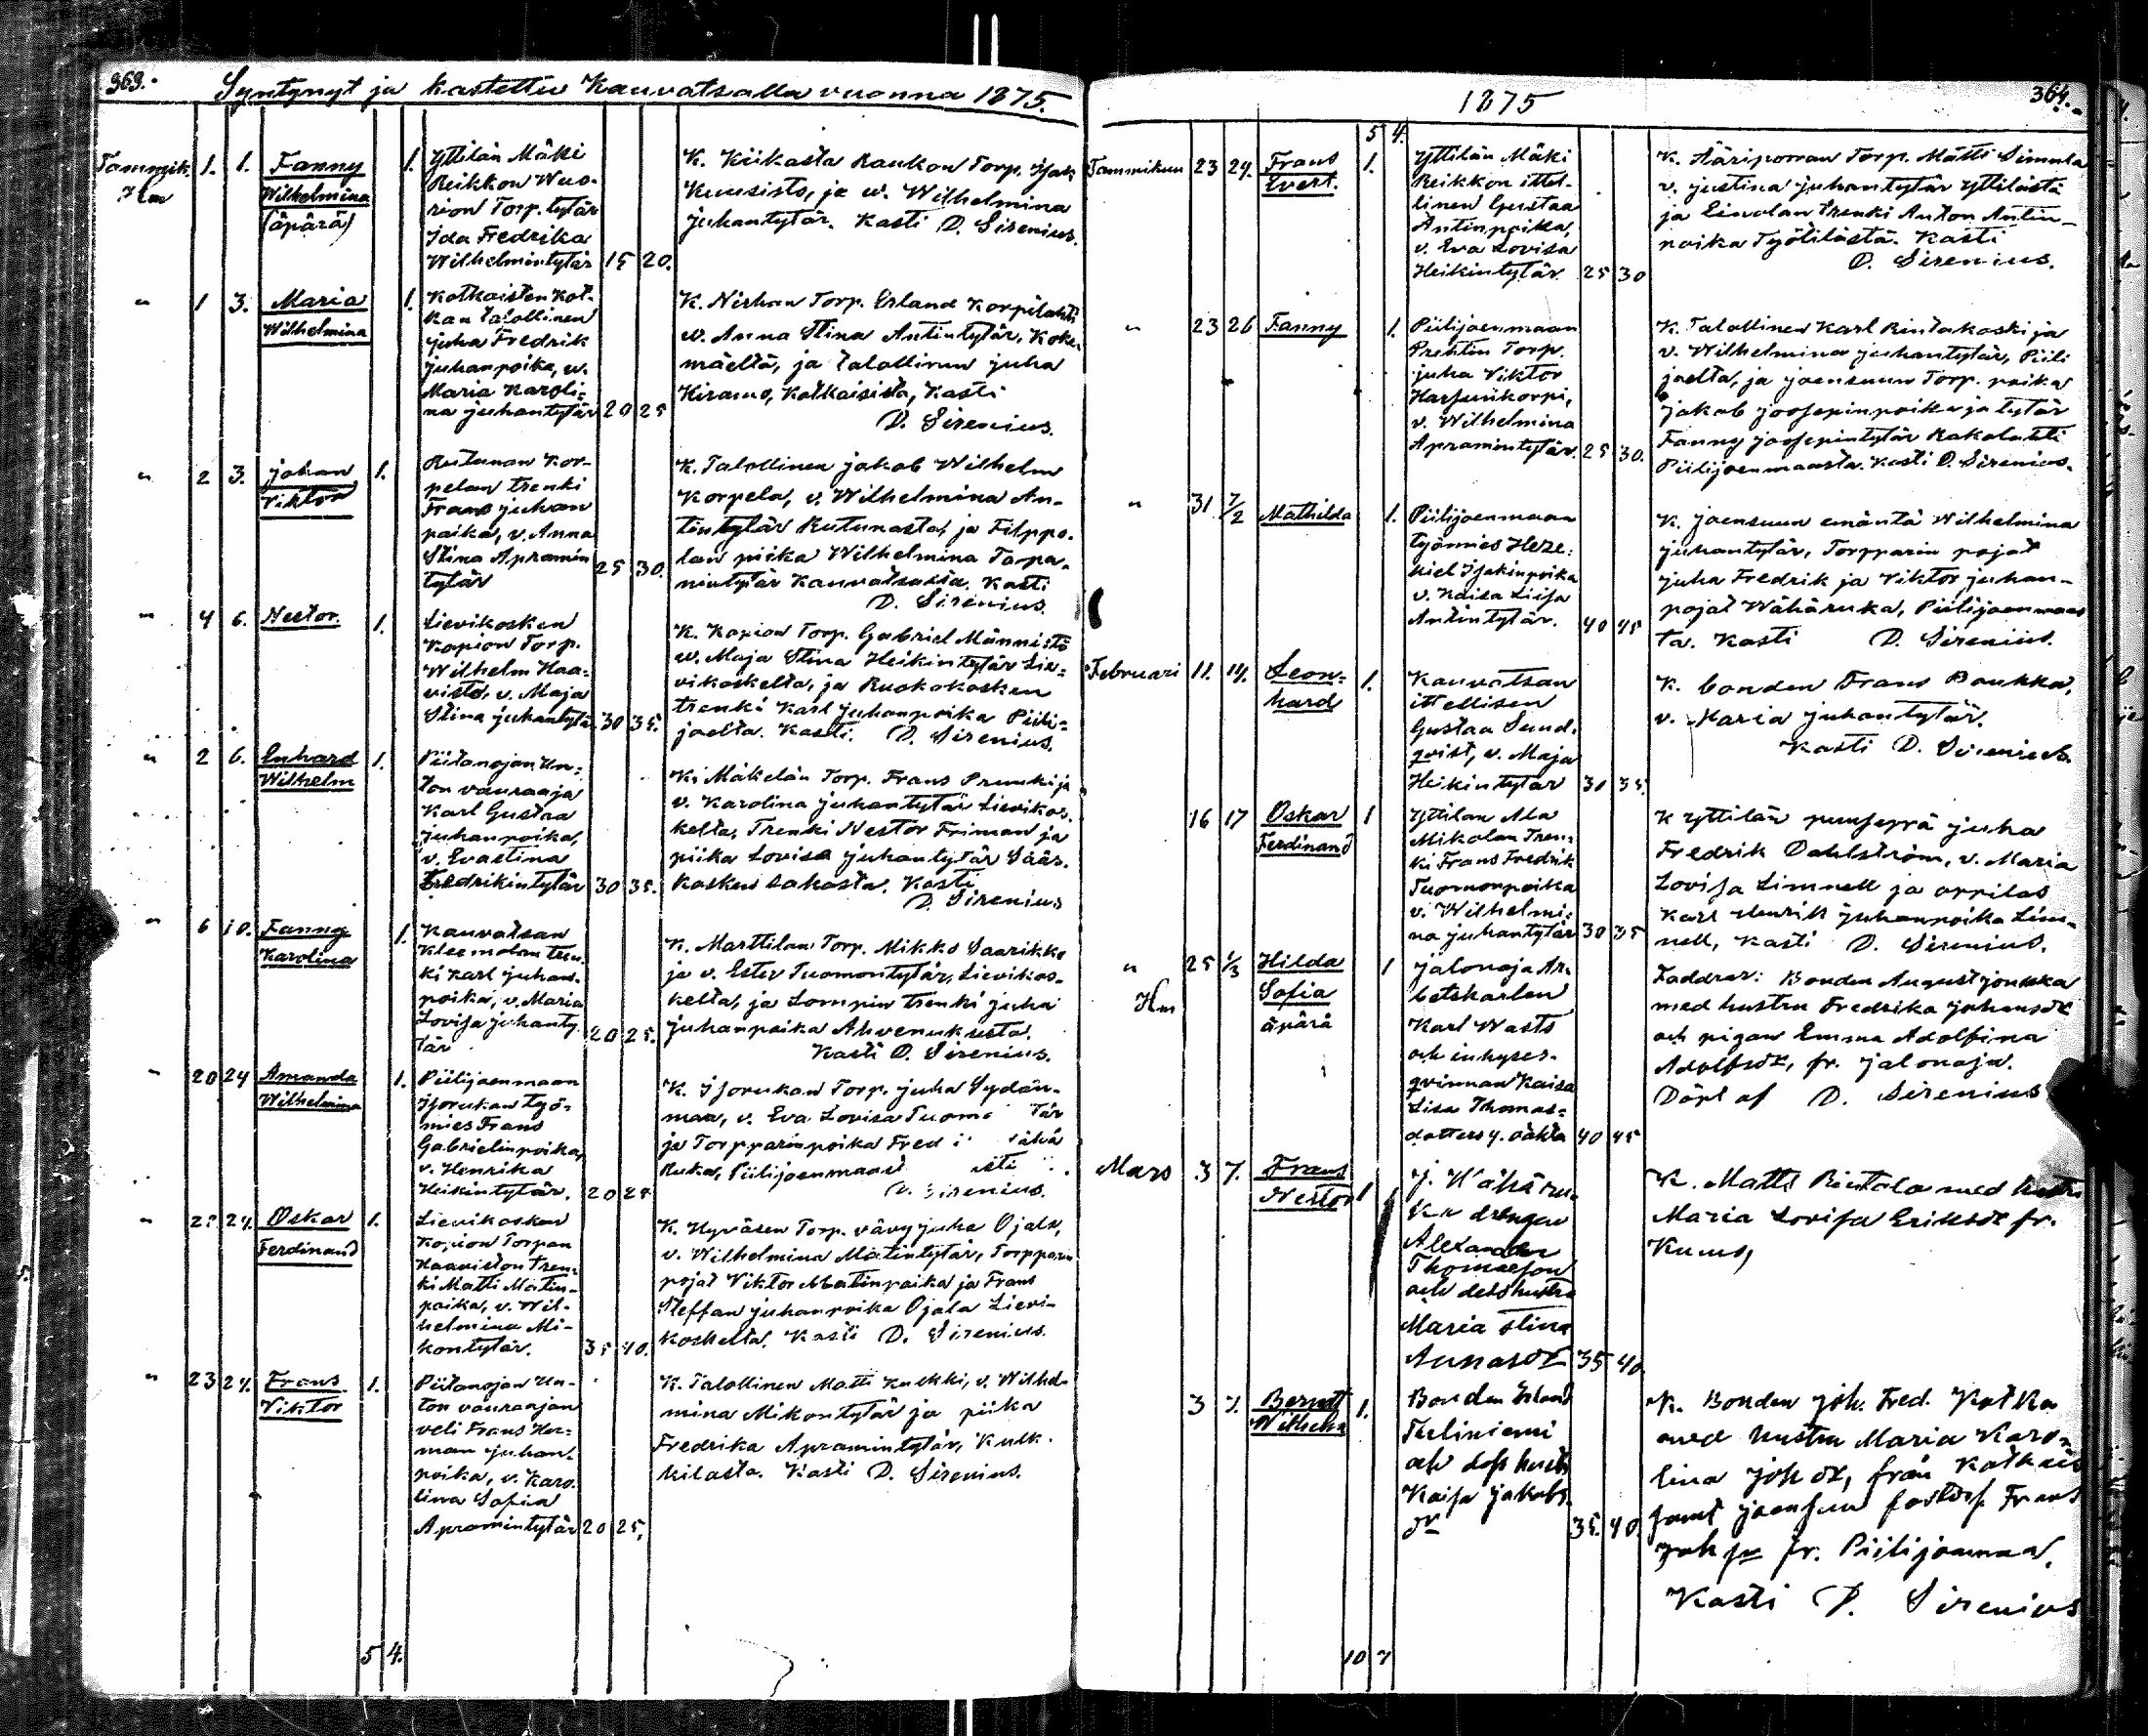 363.
Syntynyt ja kastettu Kauvatsalla vuonna 1875.
Tammik. 1. 1. Fanny 1. Yttilän Mäki
Hm Wilhelmina Reikkon Wuo-
(äpärä) rion Torp. tytär
Ida Fredrika
Wilhelmintytär 15 20.
K. Kiikasta Raukon Torp. Isak
Kuusisto, ja w. Wilhelmina
Juhantytär. Kasti D. Sirenius.
" 1 3. Maria 1. Katkaisten Kat-
Wilhelmina kan talollinen
Juha Fredrik
Juhanpoika, w.
Maria Karoli-
na Juhantytär 20 25
K. Nirhan Torp. Erland Korpilahti
w. Anna Stina Antintytär, Koke-
mäeltä, ja talollinen Juha
Katkaisista, Kasti
D. Sirenius.
" 2 3. Johan 1. Rutunan Kor-
Viktor pelan trenki
Frans Juhan
poika, v. Anna
Stina Apramin
tytär 25 30.
K. Talollinen Jakob Wilhelm
Korpela, v. Wilhelmina An-
tintytär Rutunasta, ja Filppo-
lan piika Wilhelmina Tapa-
nintytär Kauvatsalta. Kasti
D. Sirenius.
" 4 6. Nestor. 1. Lievikosken
Kopion Torp.
Wilhelm Haa-
visto, v. Maja
Stina Juhantytär 30 35.
K. Kopion Torp. Gabriel Männistö
w. Maja Stina Heikintytär Lie-
vikoskelta, ja Ruokokosken
trenki Karl Juhanpoika Piili-
joelta. Kasti. D. Sirenius.
" 2 6. Enhard 1. Piitanojan Un-
Wilhelm ton vauraaja
Karl Gustaa
Juhanpoika,
v. Evastina
Fredrikintytär 30 35.
K. Mäkelän Torp. Frans Prunki ja
v. Karolina Juhantytär Lievikos-
kelta, Trenki Nestor Friman ja
piika Lovisa Juhantytär Sääs-
kosken sahasta. Kasti
D. Sirenius
" 6 10. Fanny 1. Kauvatsan
Karolina Kleemolan tren-
ki Karl Juhan-
poika, v. Maria
Lovisa Juhanty-
tär 20 25.
K. Marttilan Torp. Mikko Saarikko
ja v. Ester Tuomontytär, Lievikos-
kelta, ja Lompin trenki Juha
Juhanpoika Ahvenuksesta.
Kasti D. Sirenius.
" 20 24 Amanda 1. Piilijoenmaan
Wilhelmina Isorukan työ-
mies Frans
Gabrielinpoika,
v. Henrika
Heikintytär. 20 25
K. Isorukan Torp. Juha Sydän-
maa, v. Eva Lovisa Tuomo tär
ja Torpparinpoika Fred
Ruka, Piilijoenmaast
D. Sirenius.
" 22 24. Oskar 1. Lievikosken
Ferdinand Kopion Torpan
Haaviston tren-
ki Matti Matin-
poika, v. Wil-
helmina Mi-
kontytär. 35 40.
K. Hyväsen Torp. vävy Juha Ojala,
v. Wilhelmina Matintytär, Torpparin
pojat Viktor Matinpoika ja Frans
Steffan Juhanpoika Ojala Lievi-
koskelta. Kasti D. Sirenius.
" 23 24. Frans 1. Piitanojan Un-
Viktor ton vauraajan
veli Frans Her-
man Juhan-
poika, v. Karo-
lina Sofia
Apramintytär 20 25.
K. Talollinen Matti Kulkki, v. Wilhel-
mina Mikontytär ja piika
Fredrika Apramintytär, Kulk-
kilasta. Kasti D. Sirenius.
5 4.
1875
364.
5 4.
Tammikuu 23 24. Frans 1. Yttilän Mäki
Evert. Reikkon ittel-
linen Gustaa
Antinpoika,
v. Eva Lovisa
Heikintytär 25 30
K. Ääriporran Torp. Matti Simula
v. Justina Juhantytär Yttilästä
ja trenki Anton Antin-
poika Työtilästä. Kasti
D. Sirenius.
" 23 26 Fanny 1. Piilijoenmaan
Prettin Torp.
Juha Viktor
Harjunkorpi,
v. Wilhelmina
Apramintytär. 25 30.
K. Talollinen Karl Rintakoski ja
v. Wilhelmina Juhantytär, Piili
joelta, ja Joensuun Torp. poika
Jakob Joosepinpoika ja tytär
Fanny Joosepintytär Kakolahti
Piilijoenmaasta. Kasti D. Sirenius.
" 31 7/2 Mathilda 1. Piilijoenmaan
työmies Heze-
kiel Isakinpoika
v. Kaisa Liisa
Antintytär. 40 45
K. Joensuun emäntä Wilhelmina
Juhantytär, Torpparin pojat
Juha Fredrik ja Viktor Juhan-
pojat Wähäruka, Piilijoenmaas
ta. Kasti D. Sirenius.
Februari 11. 14. Leon- 1. Kauvatsan
hard ittellisen
Gustaa Sund-
qvist, v. Maja
Heikintytär 30 35.
K. bonden Frans Boukka,
v. Maria Juhantytär.
Kasti D. Sirenius.
16 17 Oskar 1 Yttilän Ala
Ferdinand Mikolan Tren-
ki Frans Fredrik
Tuomonpoika
v. Wilhelmi-
na Juhantytär 30 35
K Yttilän puuseppä Juha
Fredrik Dahlström, v. Maria
Lovisa Limnell ja oppilas
Karl Henrik Juhanpoika Lim-
nell, Kasti D. Sirenius.
" 25 1/3 Hilda 1 Jalonoja Ar-
Hm Sofia betskarlen
äpärä Karl Wasts
och inhyses-
qvinnan Kaisa
Lisa Thomas-
dotters y. oäkta 40 45
Faddrar: Bonden August Joukka
med hustru Fredrika Johansdr
och pigan Emma Adolfina
Adolfsdr, fr. Jalonoja.
Döpt af D. Sirenius
Mars 3 7. Frans 1 J. Wähäru-
Nestor ka drengen
Alexander
Thomasson
och dess hustru
Maria Stina
Annasdr 35 40
K. Matts Rintala med hustru
Maria Lovisa Eriksdr fr.
3 7. Berndt 1. Bonden Erland
Wilhelm Teliniemi
och dess hustr
Kaisa Jakobs
dr 35. 40.
K. Bonden Joh. Fred. Katka
med hustru Maria Karo-
lina Joh dr, från Katkais
samt Joensuu Frans
Joh sn fr. Piilijoenmaa.
Kasti D. Sirenius
10 7